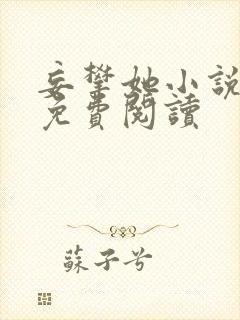 妄攀她小說
免費閱讀
蘇子兮